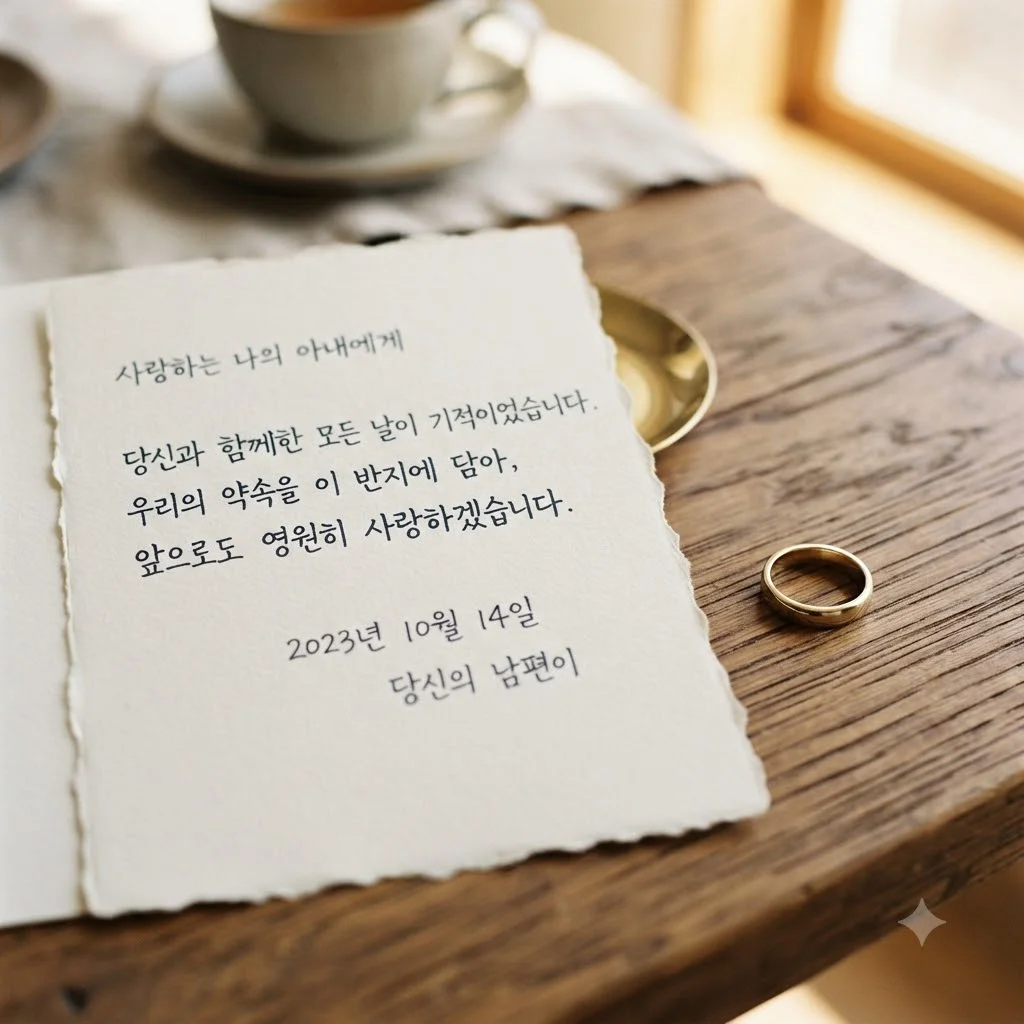 사랑하는 나의 아내에게
당신과 함께한 모든 날이 기적이었습니다.
우리의 약속을 이 반지에 담아,
앞으로도 영원히 사랑하겠습니다.
2023년 10월 14일
당신의 남편이